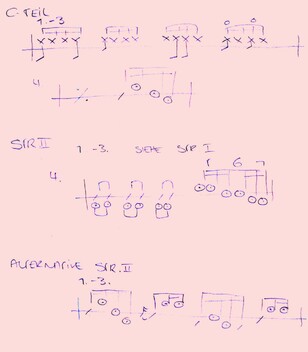 C-TEIL
1.-3.
4.
STR II 1.-3. SIEHE STR I
1 6 7
4.
ALTERNATIVE STR. II
1.-3.